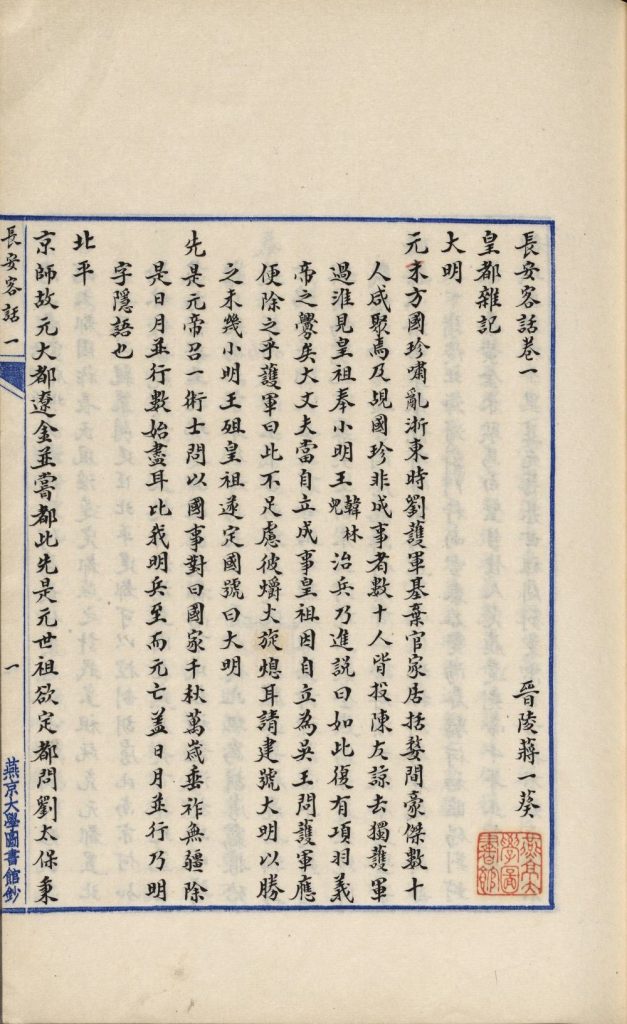 長安客話卷一
晉陵蔣一葵
皇都雜記
大明
元末方國珍嘯亂浙東時劉護軍基棄官家居括婺間豪傑數十
人咸聚焉及覘國珍非成事者數十人皆投陳友諒去獨護軍
過淮見皇祖奉小明王韓林兒治兵乃進説曰如此復有項羽義
帝之釁矣大丈夫當自立成事皇祖因自立為吳王問護軍應
便除之乎護軍曰此不足慮彼爝火旋熄耳請建號大明以勝
之未幾小明王殂皇祖遂定國號曰大明
先是元帝召一術士問以國事對曰國家千秋萬歲垂祚無疆除
是日月並行數始盡耳比我明兵至而元亡蓋日月並行乃明
字隱語也
北平
京師故元大都遼金並嘗都此先是元世祖欲定都問劉太保秉
長安客話一
一
燕京大學圖書館鈔
燕京大學圖書館